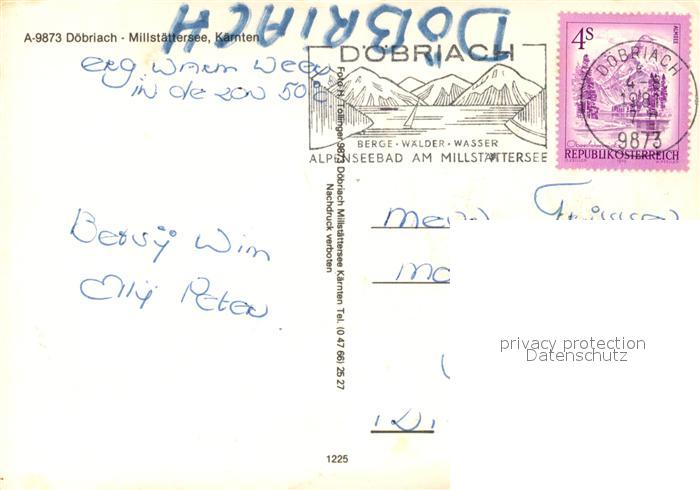 DÖBRIACH
A-9873 Döbriach · Millstättersee, Kärnten
erg warm weer
in de zon 50°C.
Betsÿ Wim
Elly Peter
Foto H. Tollinger 9873 Döbriach Millstättersee Kärnten Tel. (0 47 66) 25 27
Nachdruck verboten
1225
DÖBRIACH
BERGE · WÄLDER · WASSER
ALPENSEEBAD AM MILLSTÄTTERSEE
4S
ALMSEE
REPUBLIK ÖSTERREICH
DÖBRIACH
9873
privacy protection
Datenschutz